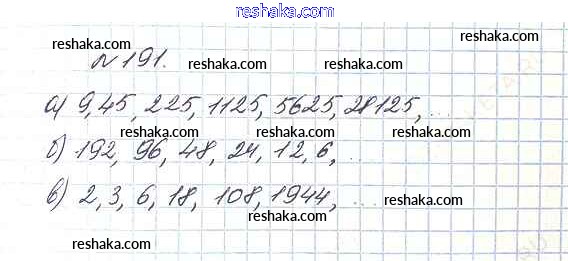 reshaka.com
reshaka.com
№191.
reshaka.com reshaka.com
а) 9, 45, 225, 1125, 5625, 28125, ...
reshaka.com reshaka.com
б) 192, 96, 48, 24, 12, 6, ...
reshaka.com reshaka.com
в) 2, 3, 6, 18, 108, 1944, ...
reshaka.com
reshaka.com
reshaka.com